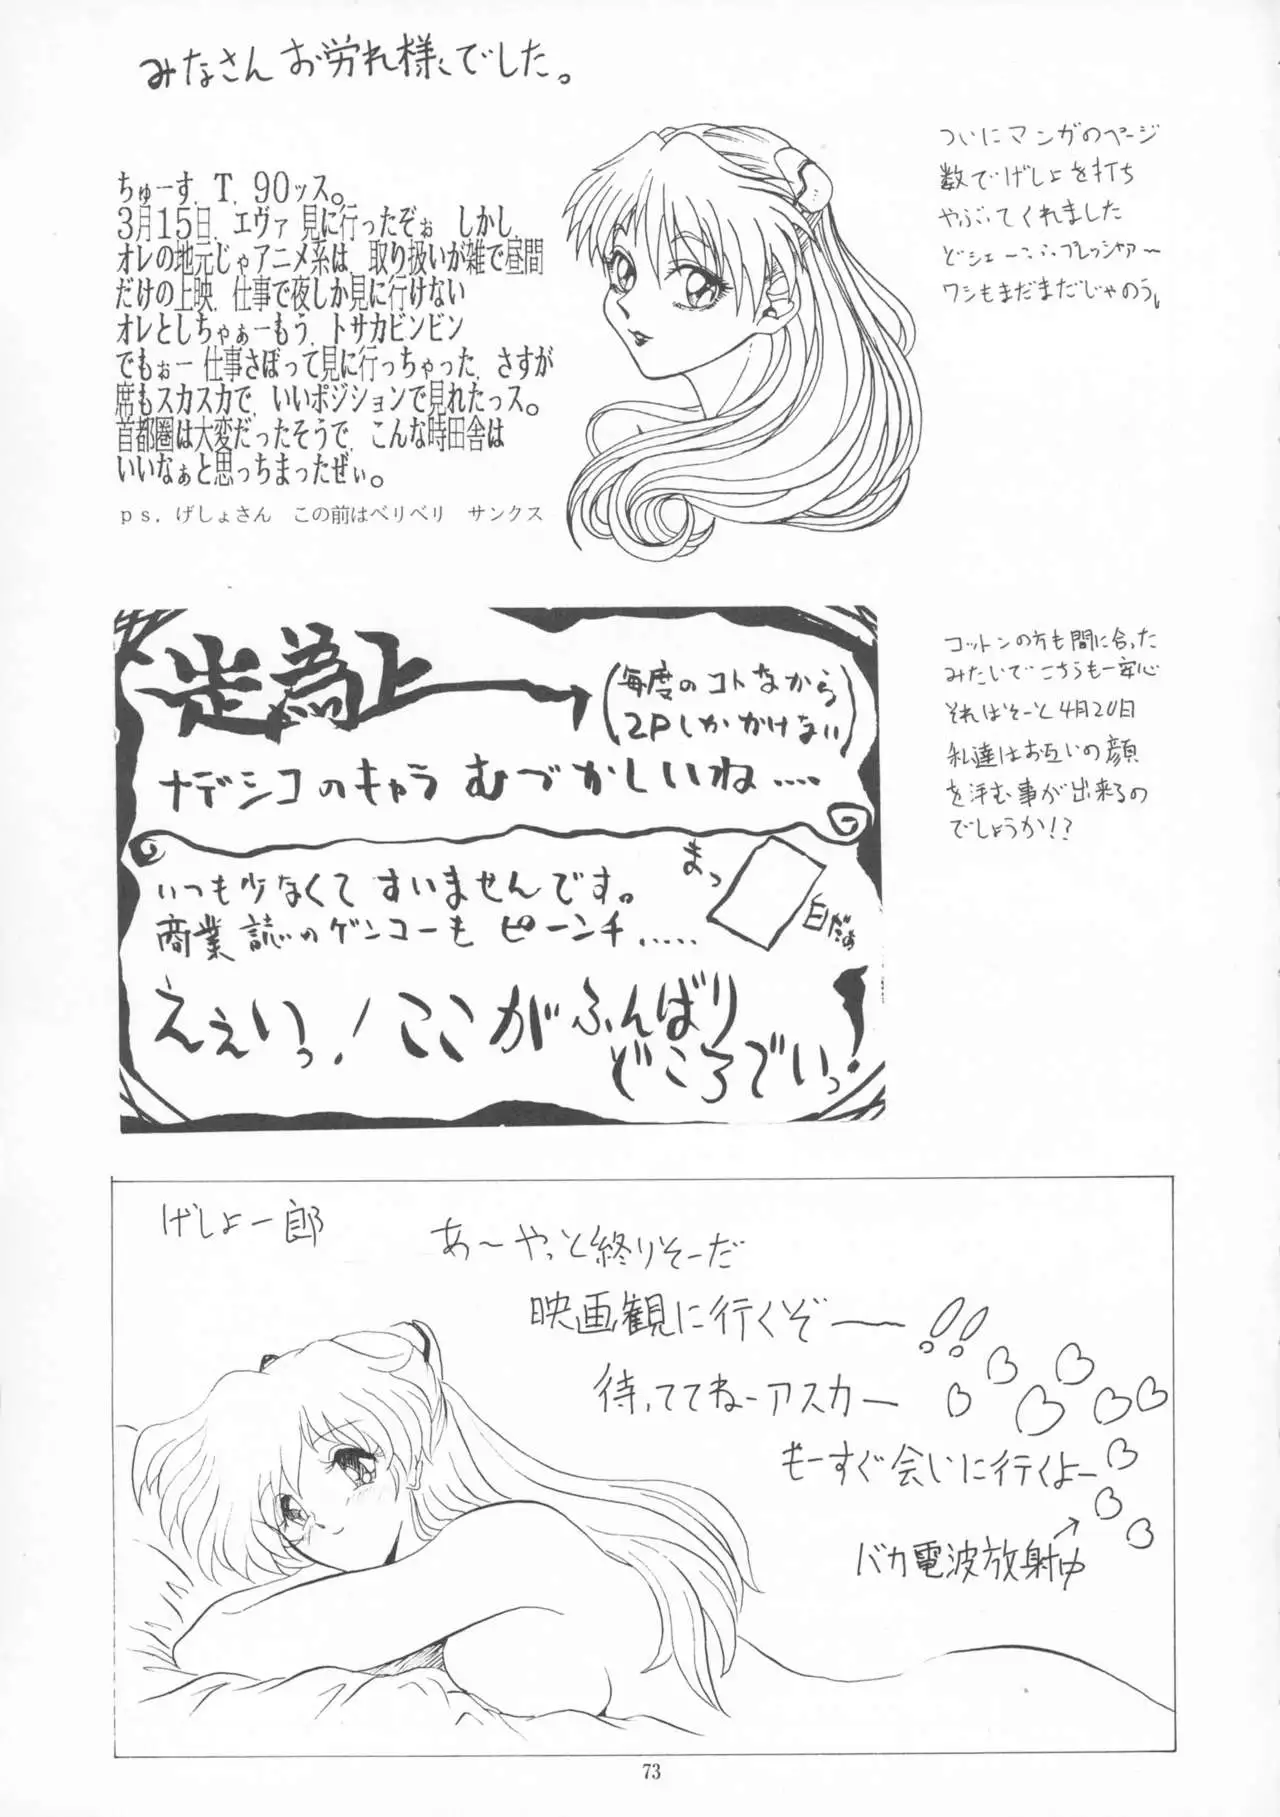 みなさんお労れ様でした。
ちゅーす.T.90ッス。
3月15日.エヴァ 見に行ったぞぉ しかし.
オレの地元じゃアニメ系は 取り扱いが雑で昼間
だけの上映.仕事で夜しか見に行けない
オレとしちゃぁーもう.トサカビンビン
でもぉー仕事さぼって見に行っちゃった.さすが
席もスカスカで.いいポジションで見れたっス。
首都圏は大変だったそうで.こんな時田舎は
いいなぁと思っちまったぜぃ。
ps.げしょさん この前はベリベリ サンクス
ついにマンガのページ
数でげしょを打ち
やぶってくれました
どシェー・・・プレッシャァ〜
ワシもまだまだじゃのう。
走為上
(毎度のコトながら
2Pしかかけない)
ナデシコのキャラ むづかしいね‥‥
いつも少なくて すいませんです。
商業誌のゲンコーも ピーンチ‥‥‥
まっ
白だぁ
ええいっ!ここがふんばり
どころでいっ!
コットンの方も間に合った
みたいでこちらも一安心
それはそーと4月20日
私達はお互いの顔
を拝む事が出来るの
でしょうか!?
げしょ一郎
あ〜やっと終りそーだ
映画観に行くぞー!!
待っててねーアスカー
もーすぐ会いに行くよー
バカ電波放射中
73